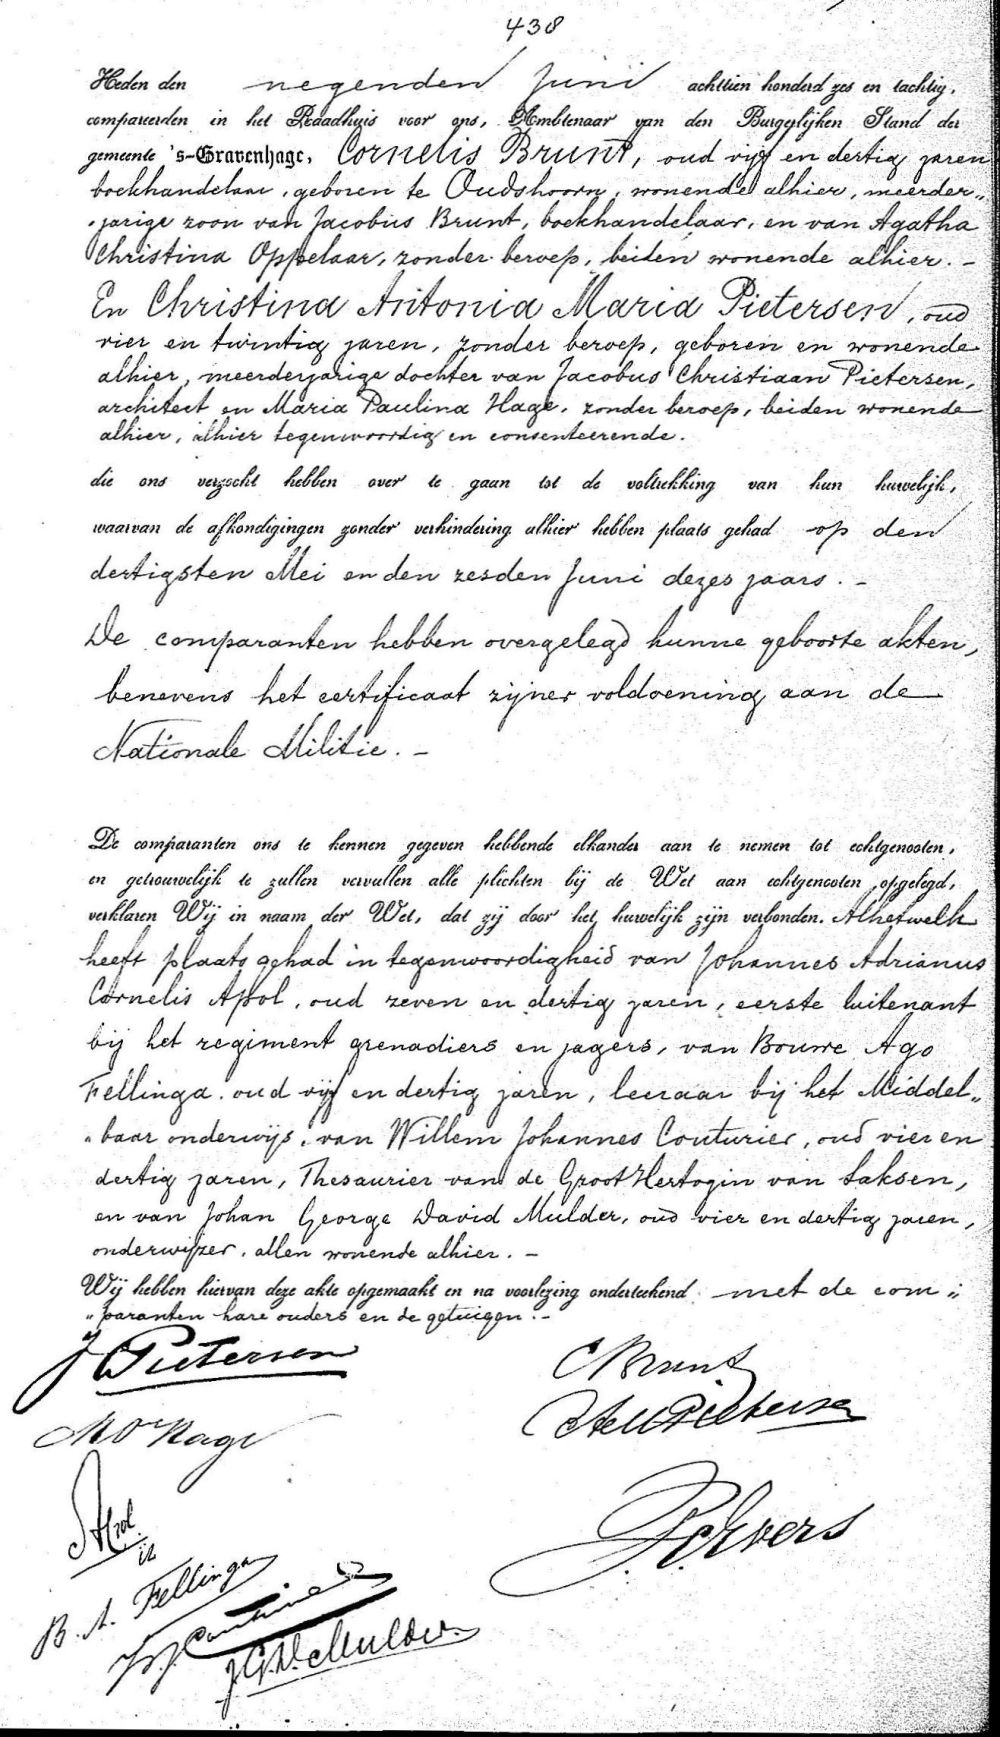 438
Heden den negenden Juni achttien honderd zes en tachtig,
compareerden in het Raadhuis voor ons, Ambtenaar van den Burgerlijken Stand der
gemeente 's-Gravenhage, Cornelis Brunt, oud vijf en dertig jaren
boekhandelaar, geboren te Oudshoorn, wonende alhier, meerder„
„jarige zoon van Jacobus Brunt, boekhandelaar, en van Agatha
Christina Oppelaar, zonder beroep, beiden wonende alhier. –
En Christina Antonia Maria Pietersen, oud
vier en twintig jaren, zonder beroep, geboren en wonende
alhier, meerderjarige dochter van Jacobus Christiaan Pietersen,
architect en Maria Paulina Hage, zonder beroep, beiden wonende
alhier, alhier tegenwoordig en consenteerende.
die ons verzocht hebben over te gaan tot de voltrekking van hun huwelijk,
waarvan de afkondigingen zonder verhindering alhier hebben plaats gehad op den
dertigsten Mei en den zesden Juni dezes jaars. –
De comparanten hebben overgelegd hunne geboorte akten,
benevens het certificaat zijner voldoening aan de
Nationale Militie. –
De comparanten ons te kennen gegeven hebbende elkander aan te nemen tot echtgenooten,
en getrouwelijk te zullen vervullen alle plichten bij de Wet aan echtgenooten opgelegd,
verklaren Wij in naam der Wet, dat zij door het huwelijk zijn verbonden. Alhetwelk
heeft plaats gehad in tegenwoordigheid van Johannes Adrianus
Cornelis Apol, oud zeven en dertig jaren, eerste luitenant
bij het regiment grenadiers en jagers, van Bouwe Ago
Fellinga, oud vijf en dertig jaren, leeraar bij het Middel„
„baar onderwijs, van Willem Johannes Couturier, oud vier en
dertig jaren, Thesaurier van de Groot Hertogin van Saksen,
en van Johan George David Mulder, oud vier en dertig jaren,
onderwijzer, allen wonende alhier. –
Wij hebben hiervan deze akte opgemaakt en na voorlezing onderteekend met de com„
„paranten hare ouders en de getuigen. –
J Pietersen
C Brunt
Hage
Pietersen
Apol
B. A. Fellinga
J.G.D. Mulder